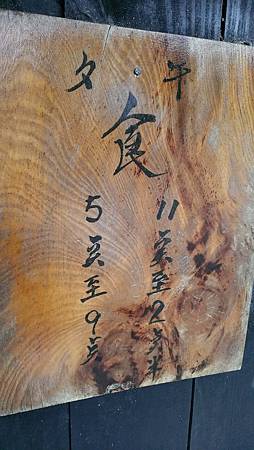 午·夕
食
11点至2点半
5点至9点